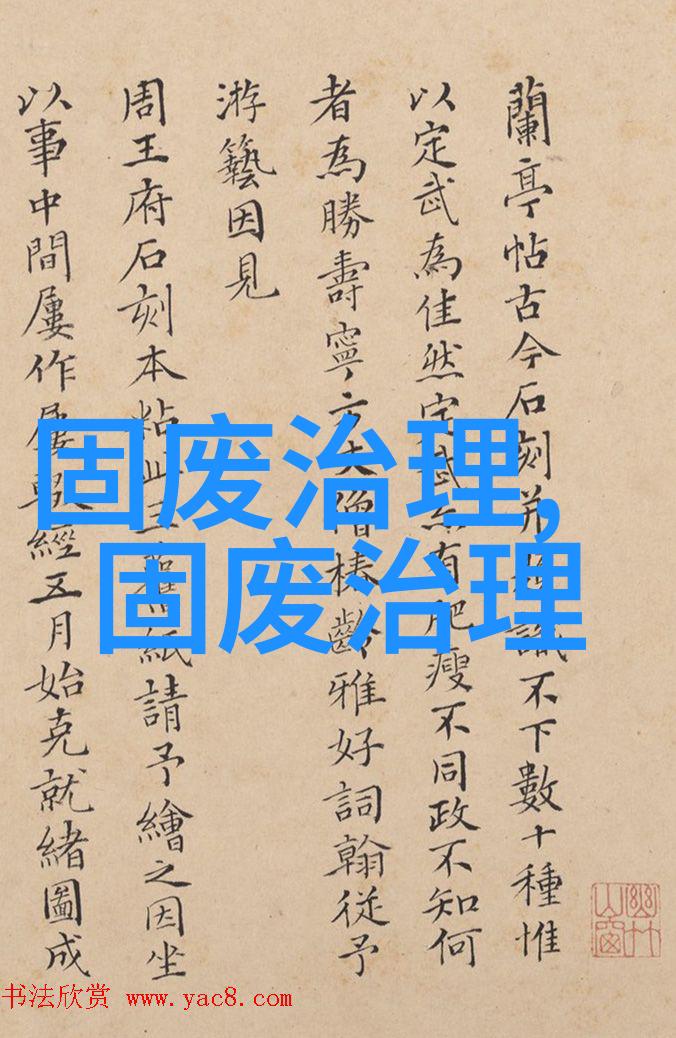 蘭亭帖古今石刻并識不下數十種惟
以定武為佳然定武亦有肥瘦不同政不知何
者為勝壽寧方丈僧椿齡雅好詞翰從予
游藝因見
周王府石刻本粘紙請予繪之因坐
以事中間屢作屢輟經五月始克就緒圖成
固废治理,
固废治理
幽竹山窗
书法欣赏 www.yac8.com